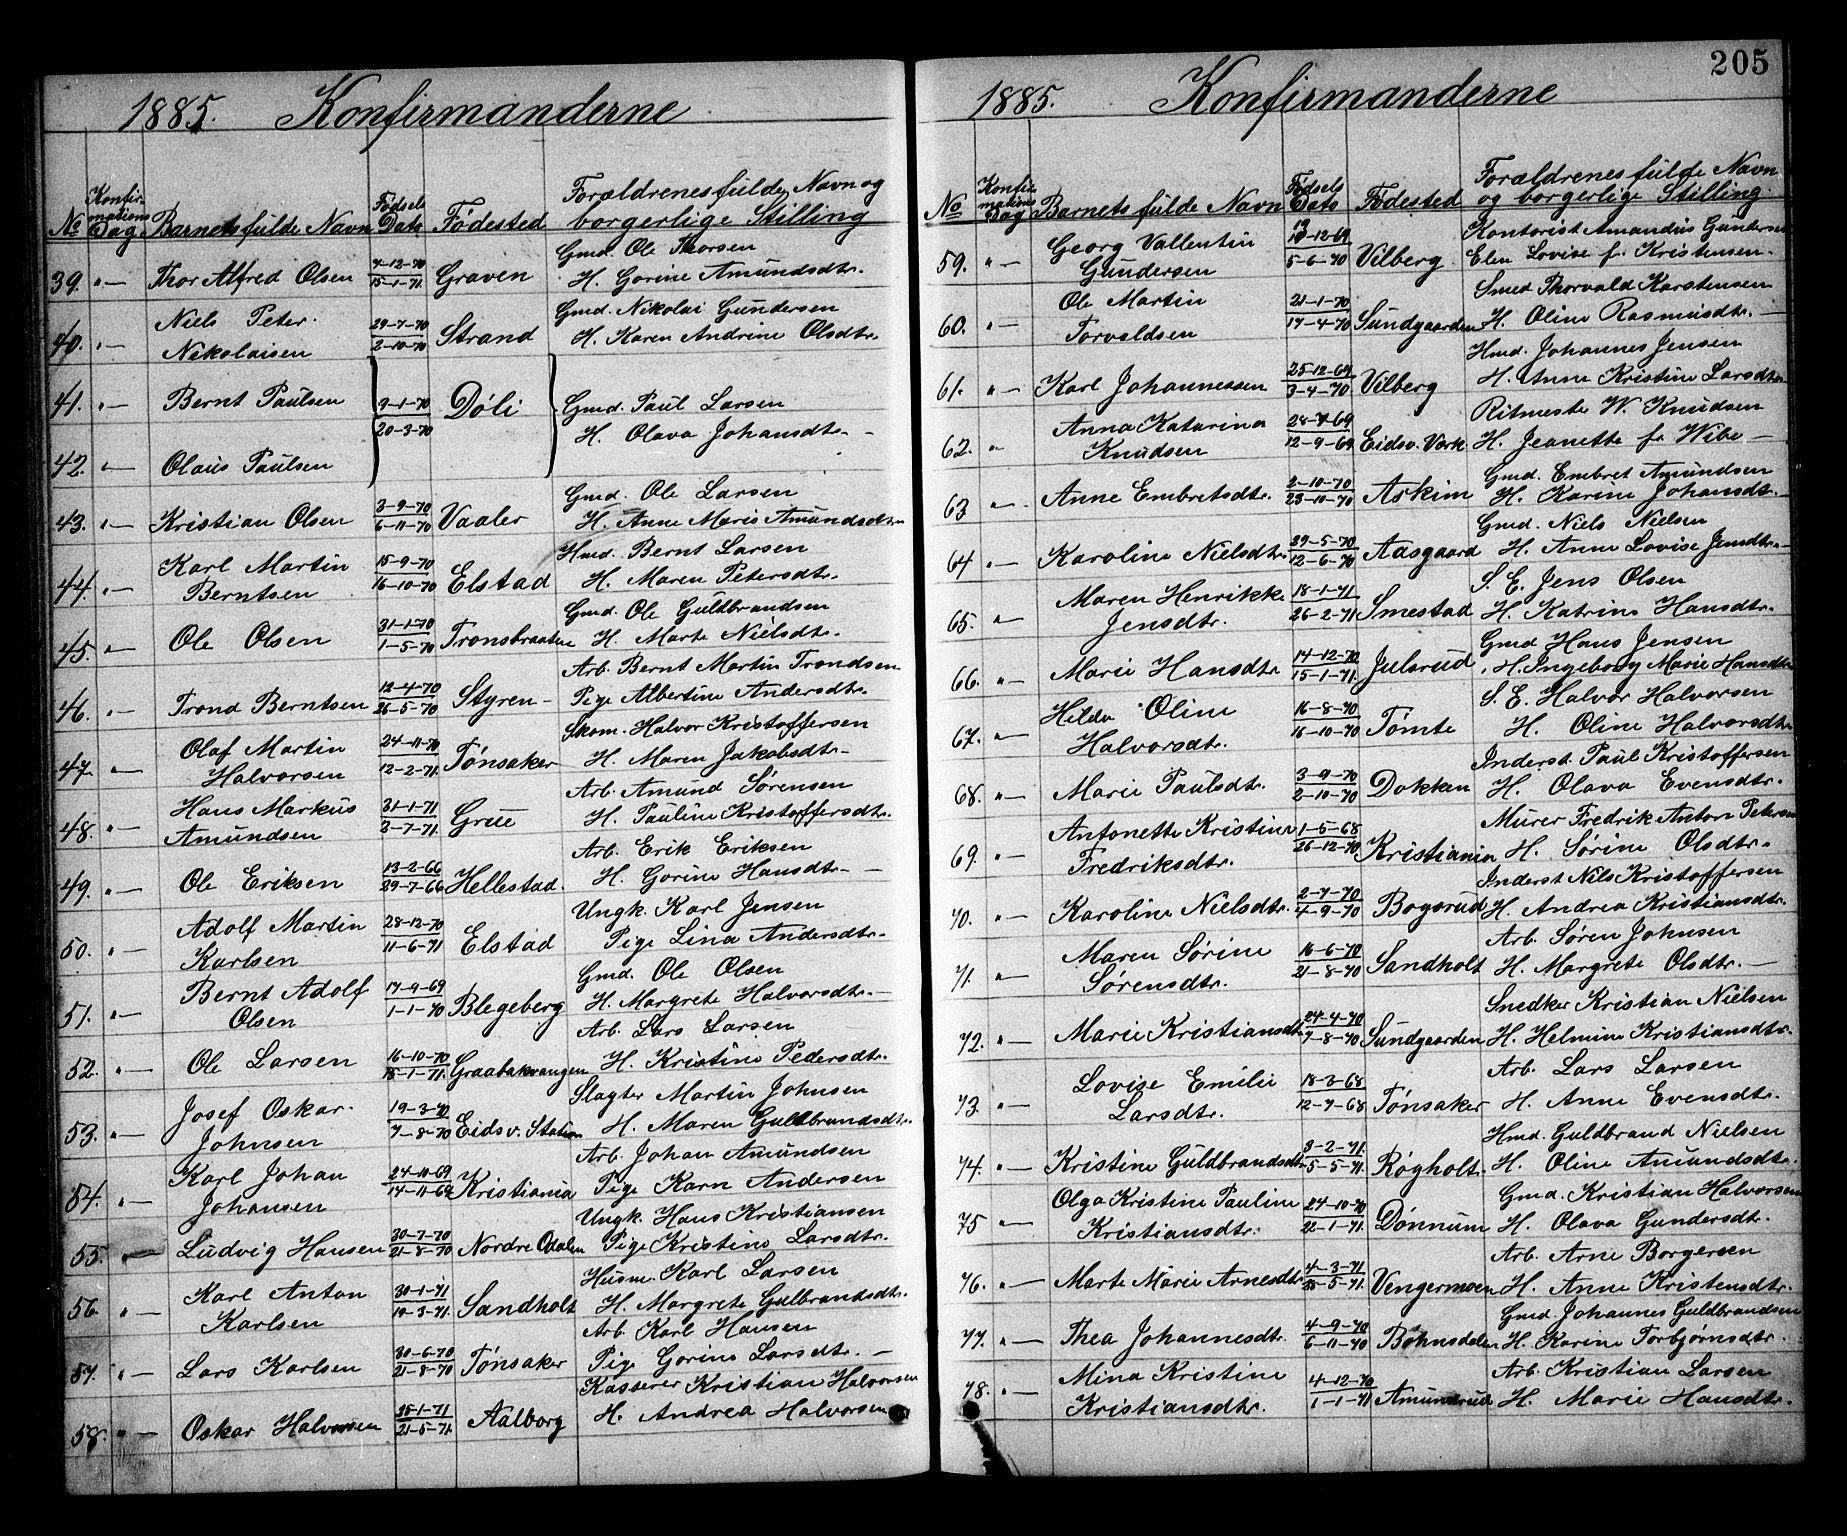 1885. Konfirmanderne
No
Konfirmations Dag
Barnets fulde Navn
Fødsels Dato
Fødested
Forældrenes fulde Navn og borgerlige Stilling
39. "— Thor Alfred Olsen 4-12-70 15-1-71. Graven Gmd. Ole Thorsen H. Gorine Amundsdtr.
40. "— Niels Peter Nikolaisen 29-7-70 2-10-70 Strand Gmd. Nikolai Gundersen H. Karen Andrine Olsdtr.
41. "— Bernt Paulsen 9-1-70 20-3-70 Døli Gmd. Paul Larsen H. Olava Johansdtr. —
42. "— Olaus Paulsen
43. "— Kristian Olsen 3-9-70 6-11-70 Vaaler Gmd. Ole Larsen H. Anne Maris Amundsdtr.
44. "— Karl Martin Berntsen 15-9-70 16-10-70 Elstad Hmd. Bernt Larsen H. Maren Petersdtr.
45. "— Ole Olsen 31-1-70 1-5-70 Tronsbraaten Gmd. Ole Guldbrandsen H. Marte Nielsdtr.
46. "— Trond Berntsen 12-4-70 26-5-70 Styren — Arb. Bernt Martin Trondsen Pige Albertine Andersdtr.
47. "— Olaf Martin Halvorsen 24-11-70 12-2-71. Tønsaker Skom. Halvor Kristoffersen H. Maren Jakobsdtr —
48. "— Hans Markus Amundsen 31-1-71 2-7-71. Grue Arb. Amund Sørensen H. Pauline Kristoffersdtr.
49. "— Ole Eriksen 13-2-66 29-7-66 Hellestad. Arb. Erik Eriksen H. Gorine Hansdtr. —
50. "— Adolf Martin Karlsen 28-12-70 11-6-71 Elstad Ungk. Karl Jensen Pige Lina Andersdtr.
51. "— Bernt Adolf Olsen 17-9-69 1-1-70 Blegeberg Gmd. Ole Olsen H. Margrete Halvorsdtr. —
52. "— Ole Larsen 16-10-70 15-1-71. Graabakvangen Arb. Lars Larsen H. Kristine Pedersdtr.
53. "— Josef Oskar Johnsen 19-3-70 7-8-70 Eidsv. Station Slagter Martin Johnsen H. Maren Guldbrandsdtr.
54. "— Karl Johan Johansen 24-10-69 14-11-69 Kristiania Arb. Johan Amundsen Pige Karn Andersen
55. "— Ludvig Hansen 30-7-70 21-8-70 Nordre Odalen Ungk. Hans Kristiansen Pige Kristine Larsdtr.
56. "— Karl Anton Karlsen 30-1-71 19-3-71 Sandholt Husm. Karl Larsen H. Margrete Gulbrandsdtr.
57. "— Lars Karlsen 30-6-70 21-8-70 Tønsaker Arb. Karl Hansen Pige Gorine Larsdtr. —
58. "— Oskar Halvorsen 15-1-71 21-5-71. Aalborg Kasserer Kristian Halvorsen H. Andrea Halvorsen
205
1885. Konfirmanderne
No
Konfirmations Dag
Barnets fulde Navn
Fødsels Dato
Fødested
Forældrenes fulde Navn og borgerlige Stilling.
59. "— Georg Vallentin Gundersen 12-69 5-6-70 Vilberg Kontorist Amandus Gundersen Elen Lovise f. Kristensen.
60. "— Ole Martin Torvaldsen 21-1-70 17-4-70 Sundgaarden Smed Thorvald Karstensen H. Oline Rasmusdtr. —
61. "— Karl Johannessen 25-12-69 3-4-70 Vilberg Hmd. Johannes Jensen H. Anne Kristine Larsdtr
62. "— Anna Katarina Knudsen 28-7-69 12-9-69 Eidsv. Værk Ritmester W. Knudsen H. Jeanette f. Wibe —
63 "— Anne Embretsdtr. 2-10-70 23-10-70 Askim Gmd. Embret Amundsen H. Karine Johansdtr.
64 "— Karoline Nielsdtr. 29-5-70 12-6-70 Aasgaard Gmd. Niels Nielsen H. Anne Lovise Jensdtr.
65. "— Maren Henrikke Jensdtr. 18-1-71 26-2-71 Smestad S. E. Jens Olsen H. Katrine Hansdtr.
66. "— Marie Hansdtr. 14-12-70 15-1-71. Julsrud Gmd Hans Jensen H. Ingeborg Marie Hansdtr
67. "— Hilda Oline Halvorsdtr. 16-8-70 16-10-70 Tømte S. E. Halvor Halvorsen H. Oline Halvorsdtr
68. "— Marie Paulsdtr. 3-9-70 2-10-70 Dokken Inderst. Paul Kristoffersen H. Olava Evensdtr.
69. "— Antonette Kristine Fredriksdtr. 1-5-68 26-12-70 Kristiania Murer Fredrik Anton Petersen H. Sørine Olsdtr.
70. "— Karoline Nielsdtr. 2-7-70 4-9-70 Bogsrud Inderst Nils Kristoffersen H. Andrea Kristiansdtr.
71. "— Maren Sørine Sørensdtr. 16-6-70 21-8-70 Sandholt Arb. Søren Johnsen H. Margrete Olsdtr. —
72. "— Marie Kristiansdtr 24-4-70 7-8-70 Sundgaarden Snedker Kristian Nielsen H. Helmine Kristiansdtr.
73. "— Lovise Emilie Larsdtr. 18-3-68 12-7-68 Tønsaker Arb. Lars Larsen H. Anne Evensdtr.
74. "— Kristine Guldbrandsdtr 3-2-71. 5-5-71. Røgholt Hmd. Guldbrand Nielsen H. Oline Amundsdtr.
75 "— Olga Kristine Pauline Kristiansdtr. 24-10-70 22-1-71. Dønnum Gmd. Kristian Halvorsen H. Olava Gundersdtr.
76. "— Marte Marie Arnesdtr 4-3-71 5-71. Vengermoen Arb. Arne Borgersen H. Anne Kristensdtr.
77. "— Thea Johannesdtr. 4-9-70 6-11-70 Bøhnsdalen Gmd Johannes Guldbrandsen H. Karine Torbjørnsdtr.
78. "— Mina Kristine Kristiansdtr. 4-12-70 1-1-71 Amundrud Arb. Kristian Larsen H. Marie Hansdtr.